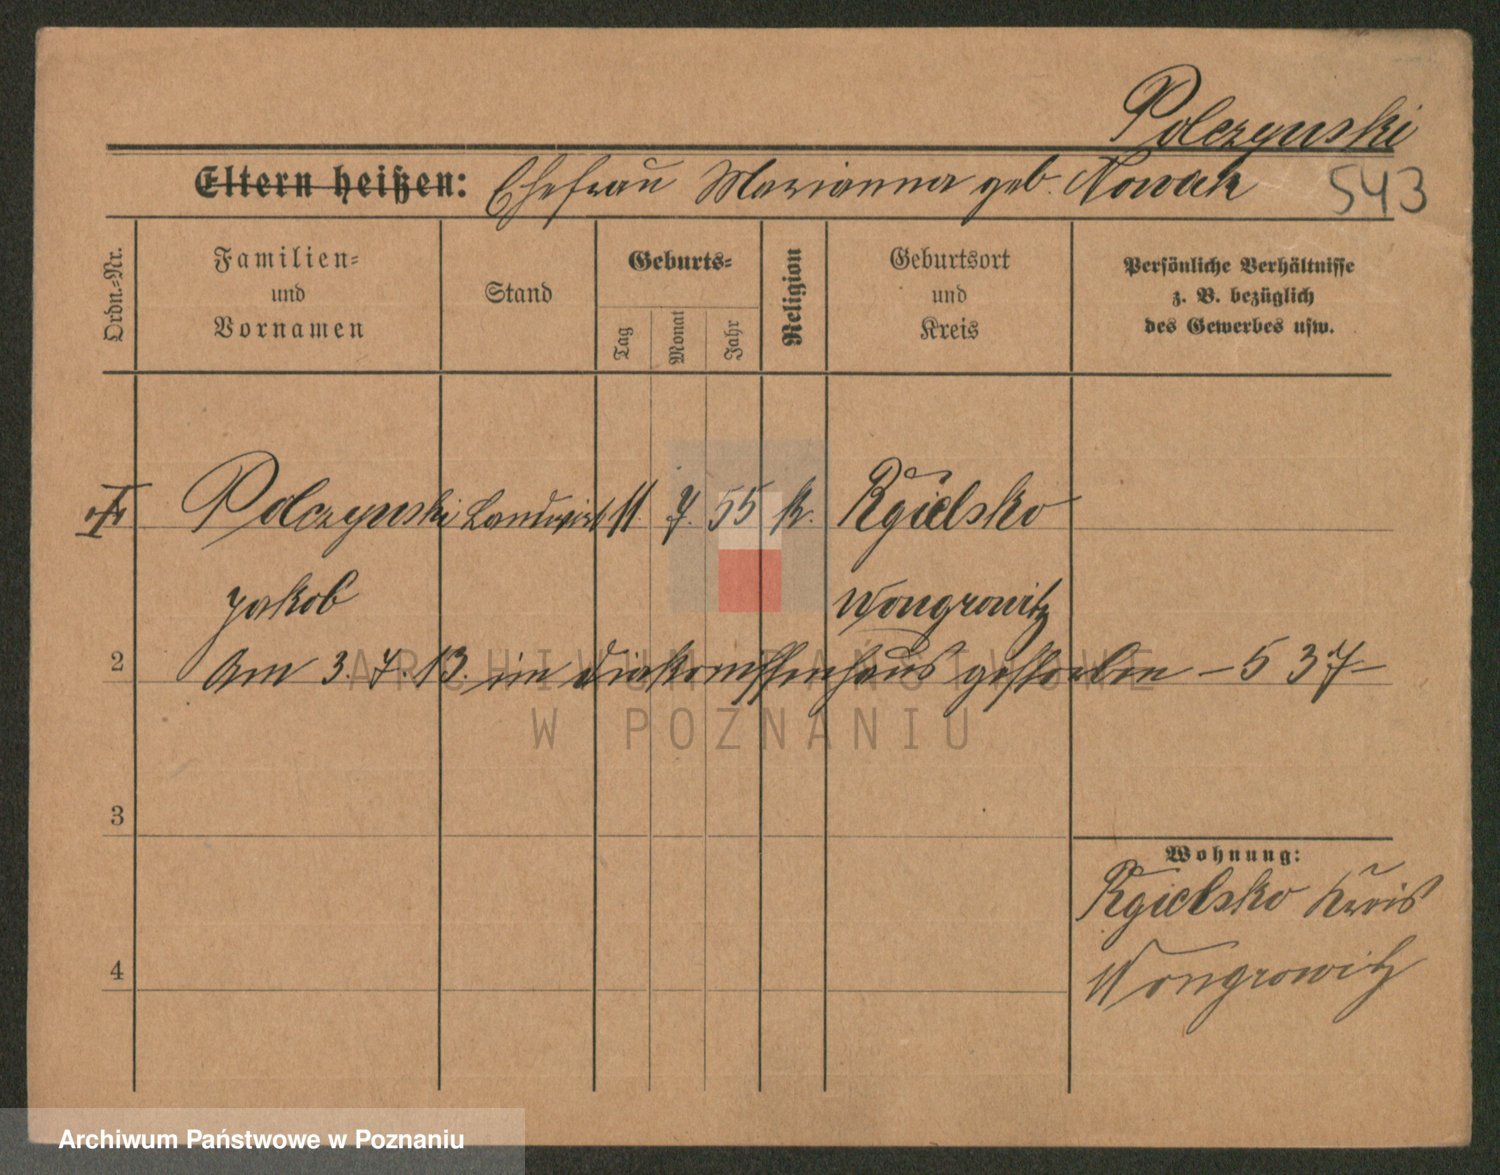 Polczynski
Eltern heißen: Ehefrau Marianna geb. Nowak 543
Ordn.-Nr.
Familien-
und
Vornamen
Stand
Geburts-
Tag
Monat
Jahr
Religion
Geburtsort
und
Kreis
Persönliche Verhältnisse
z. B. bezüglich
des Gewerbes usw.
Polczynski Landwirt 11. 7. 55 k. Rgielsko
Jakob Wongrowitz
2 Am 3. 7. 13. im Diakonissenhaus gestorben – 537 –
ARCHIWUM PAŃSTWOWE
W POZNANIU
3
Wohnung:
Rgielsko Kreis
4 Wongrowitz
Archiwum Państwowe w Poznaniu